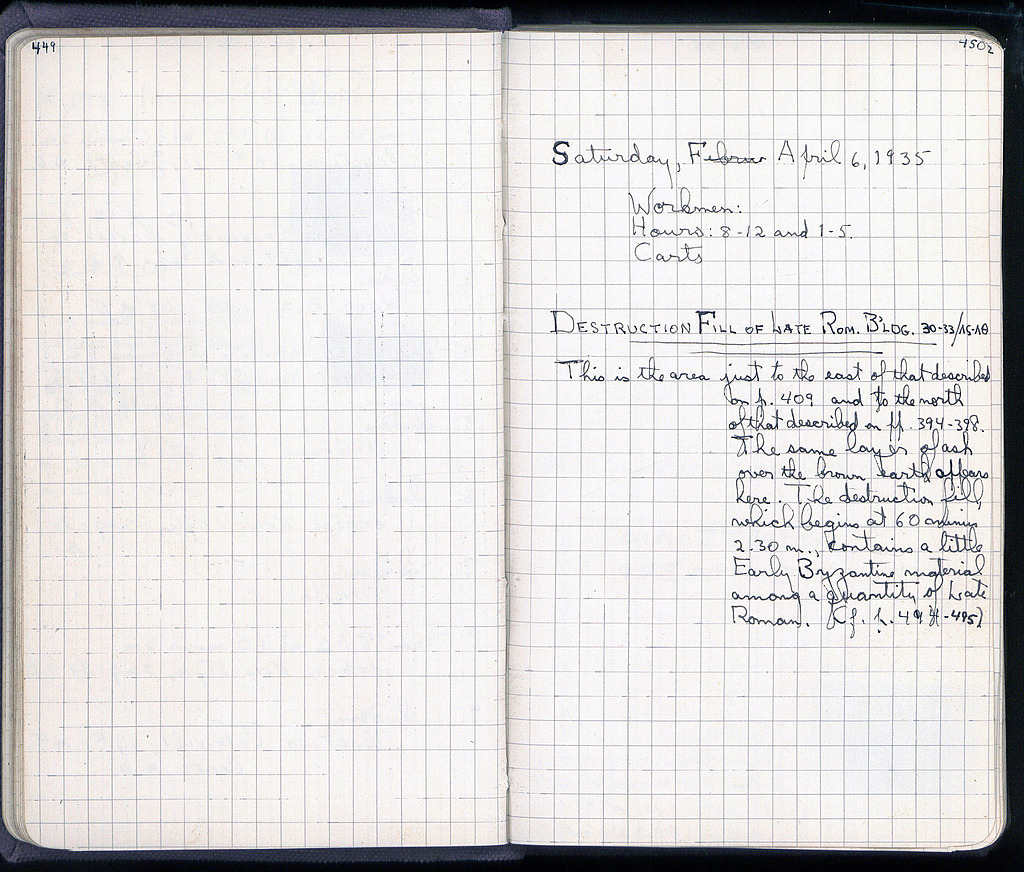 449
4502
Saturday, Febru April 6, 1935
Workmen:
Hours: 8-12 and 1-5.
Carts
DESTRUCTION FILL OF LATE ROM. B'LDG. 30-33/15-18
This is the area just to the east of that described
on p. 409 and to the north
of that described on pp. 394-398.
The same layer of ash
over the brown earth appears
here. The destruction fill,
which begins at 60 minus
2.30 m., contains a little
Early Byzantine material
among a quantity of Late
Roman. (Cf. p. 494-495)